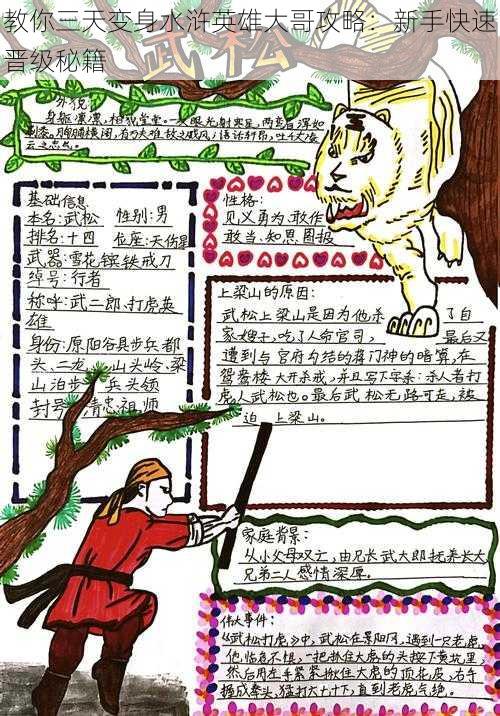 教你三天变身水浒英雄大哥攻略：新手快速
晋级秘籍
武松
外貌：
身躯凛凛，相貌堂堂。一双眼光射寒星，两弯眉浑如
刷漆。胸脯横阔，有万夫难敌之威风；语话轩昂，吐千丈凌
云之志气。
基础信息
本名：武松 性别：男
排名：十四 位座：天伤星
武器：雪花镔铁戒刀
绰号：行者
称呼：武二郎、打虎英
雄
身份：原阳谷县步兵都
头、二龙 山头岭、梁
山泊步 兵头领
封号 清忠祖师
性格：
见义勇为、敢作
敢当、知恩图报
上梁山的原因：
武松上梁山是因为他杀 了自
家嫂子，吃了人命官司， 最后又
遭到与官府勾结的蒋门神的暗算，在
鸳鸯楼大开杀戒，并且写下字条：杀人者打
虎人武松也。最后武松无路可走，被
迫上梁山。
家庭背景：
从小父母双亡，由兄长武大郎抚养长大
兄弟二人感情深厚。
伟大事件：
《武松打虎》中，武松在景阳冈，遇到一只老虎，
他临危不惧，一把抓住大虎的头按下黄坑里，
然后用左手紧紧揪住大虎的顶花皮，右手
握成拳头，猛打大十下，直到老虎气绝。